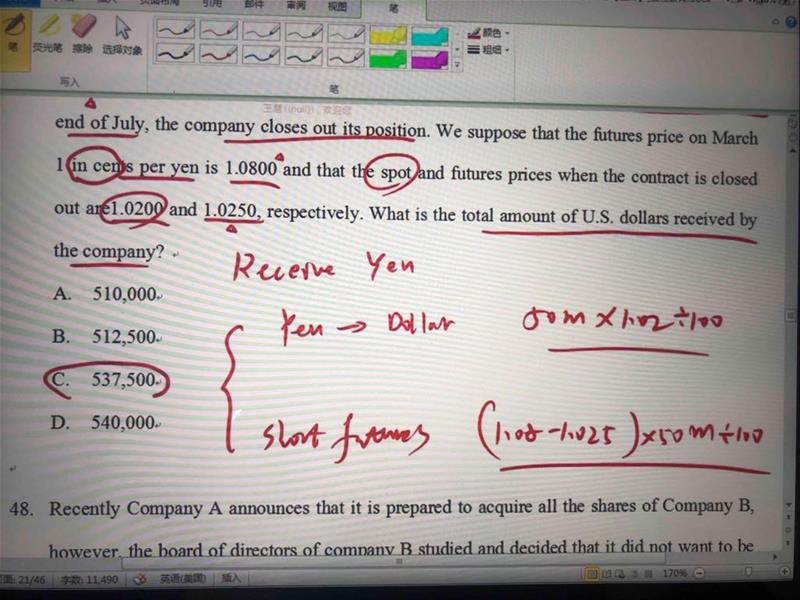 引用
邮件
审阅
视图
笔
笔
荧光笔
擦除
选择对象
颜色
粗细
写入
笔
end of July, the company closes out its position. We suppose that the futures price on March
1 in cents per yen is 1.0800 and that the spot and futures prices when the contract is closed
out are1.0200 and 1.0250, respectively. What is the total amount of U.S. dollars received by
the company?
Receive Yen
A. 510,000
Yen → Dollar 50m×1.02÷100
B. 512,500
C. 537,500
D. 540,000
short futures (1.08-1.025)×50m÷100
48. Recently Company A announces that it is prepared to acquire all the shares of Company B,
however, the board of directors of company B studied and decided that it did not want to be
页面: 21/46 字数: 11,490 英语(美国) 插入 170%